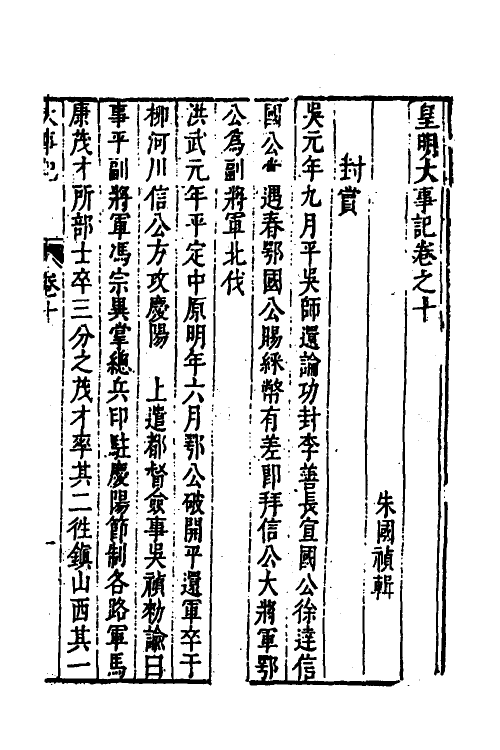 皇明大事記卷之十
朱國禎輯
封賞
吳元年九月平吳師還論功封李善長宣國公徐達信
國公常遇春鄂國公賜綵幣有差即拜信公大將軍鄂
公為副將軍北伐
洪武元年平定中原明年六月鄂公破開平還軍卒于
柳河川信公方攻慶陽　上遣都督僉事吳禎勑諭曰
事平副將軍馮宗異掌總兵印駐慶陽節制各路軍馬
康茂才所部士卒三分之茂才率其二徃鎮山西其一
大事記　卷十　一